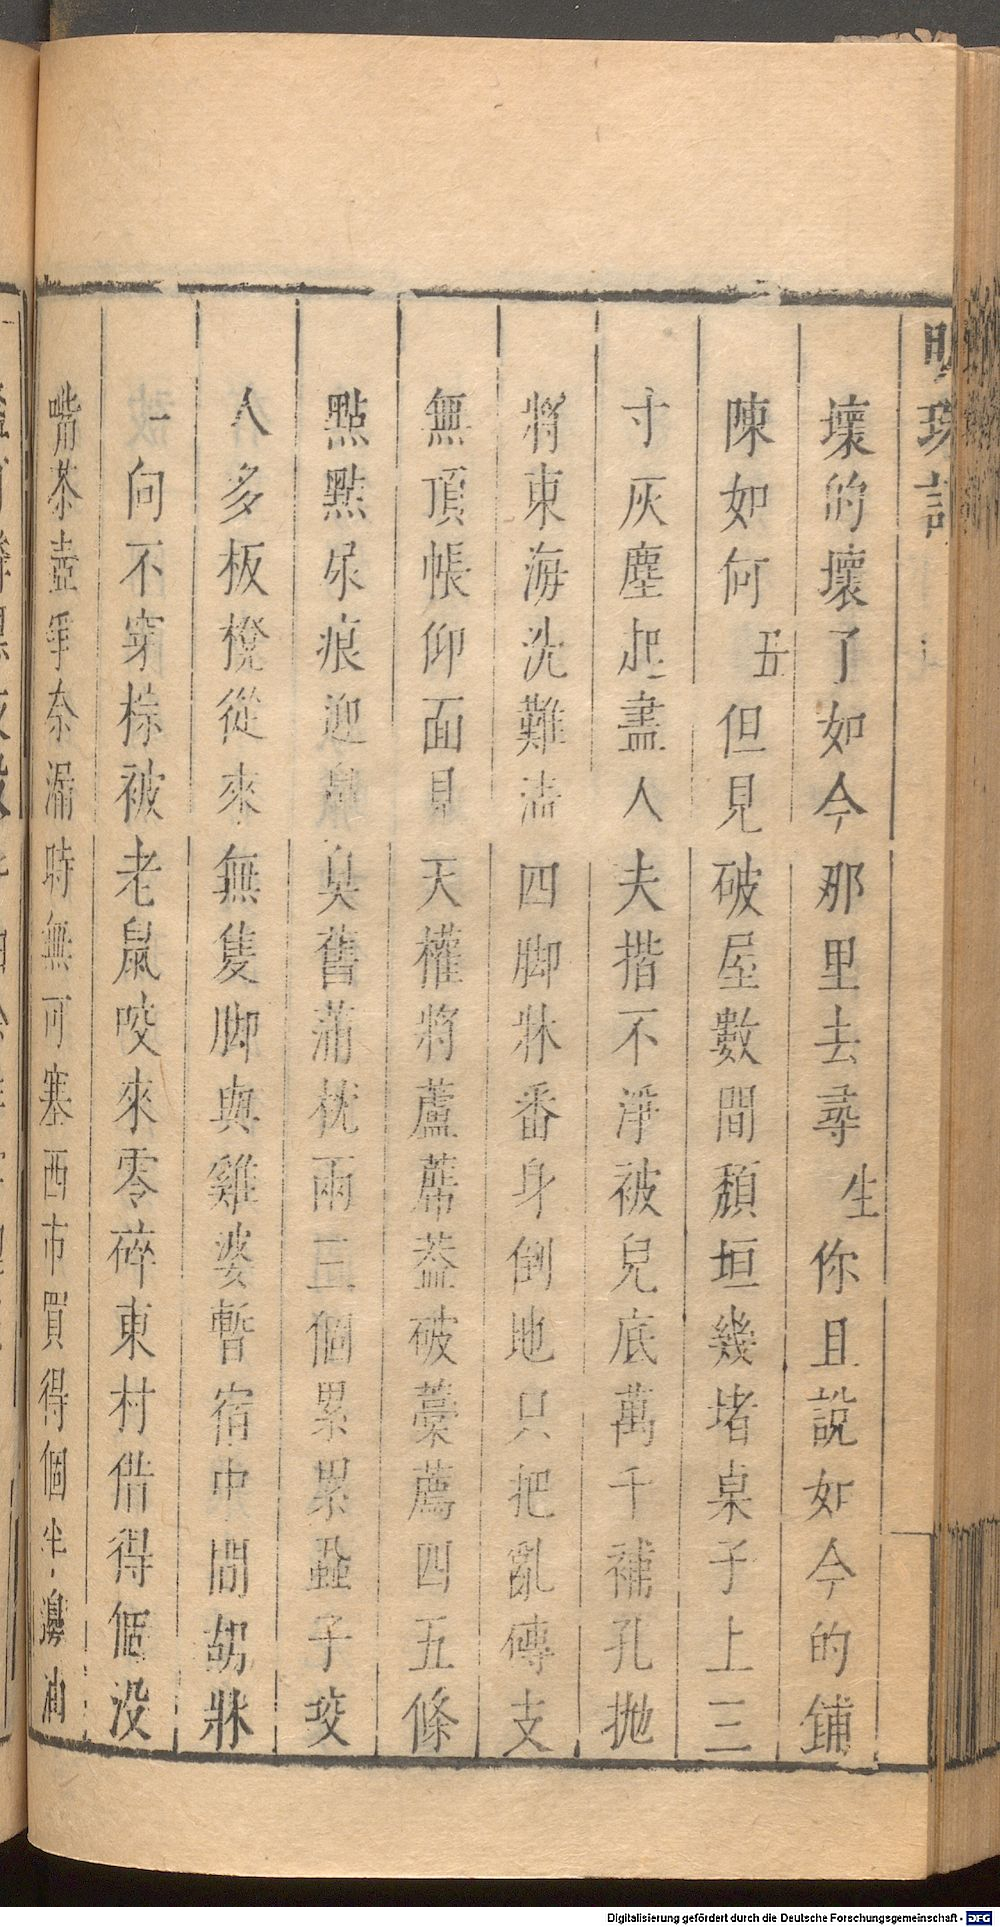 明珠記
壞的壞了如今那里去尋生你且說如今的鋪
陳如何丑但見破屋數間頹垣幾堵桌子上三
寸灰塵起盡人夫揩不淨被兒底萬千補孔拋
將東海洗難清四脚牀番身倒地只把亂磚支
無頂帳仰面見天權將蘆蓆葢破藁薦四五條
點點尿痕迎鼻臭舊蒲枕兩三個累累蝨子咬
人多板櫈從來無隻脚與雞婆暫宿中間芴牀
一向不穿棕被老鼠咬來零碎東村借得個没
嘴茶壺爭奈漏時無可塞西市買得個半邊油
Digitalisierung gefördert durch die Deutsche Forschungsgemeinschaft - DFG